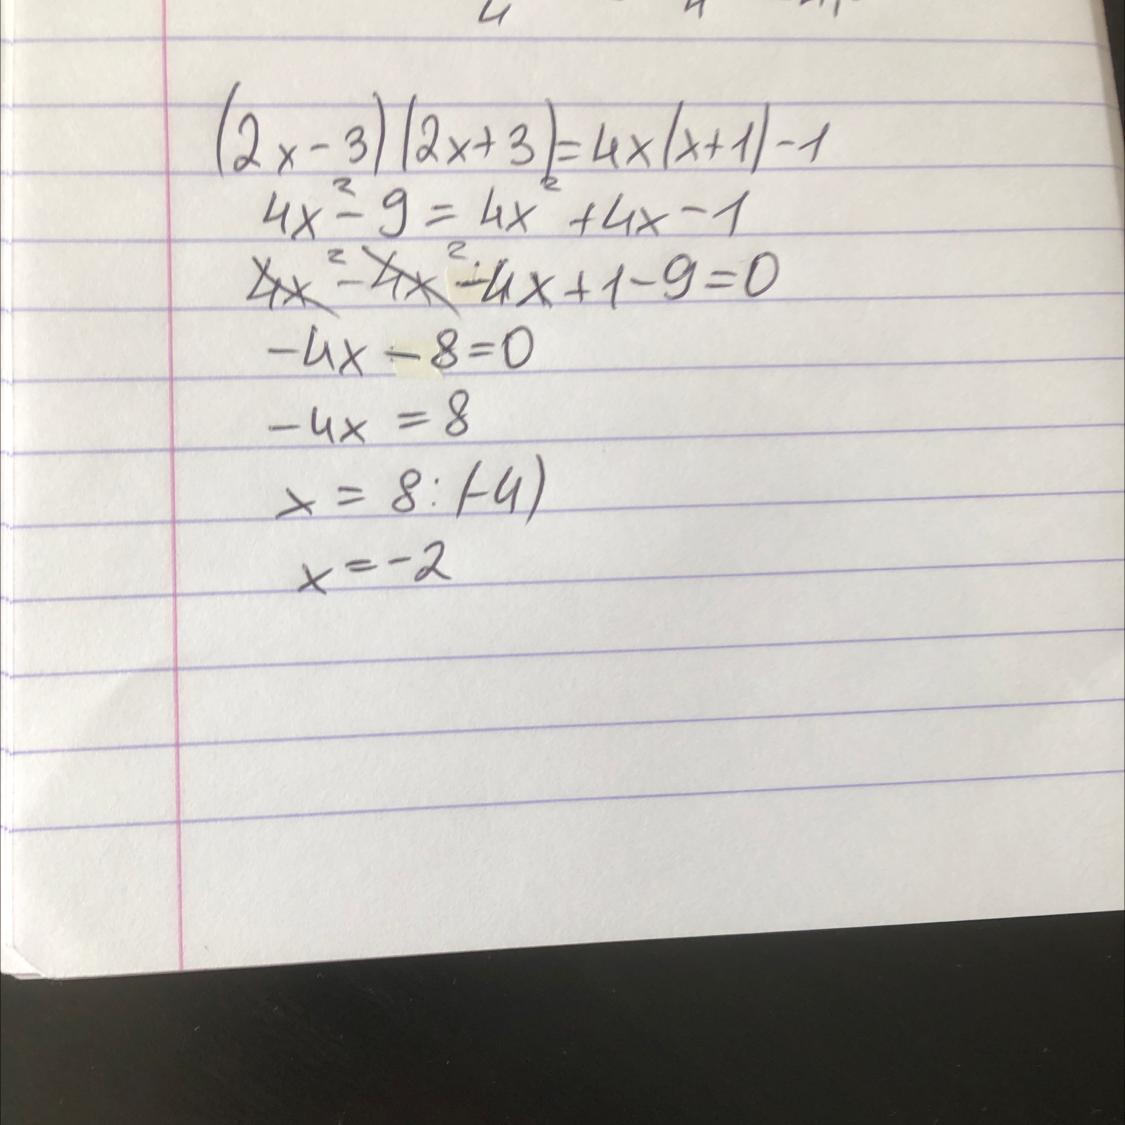 (2x-3)(2x+3)=4x(x+1)-1
4x²-9=4x²+4x-1
4x²-4x²-4x+1-9=0
-4x-8=0
-4x=8
x=8:(-4)
x=-2